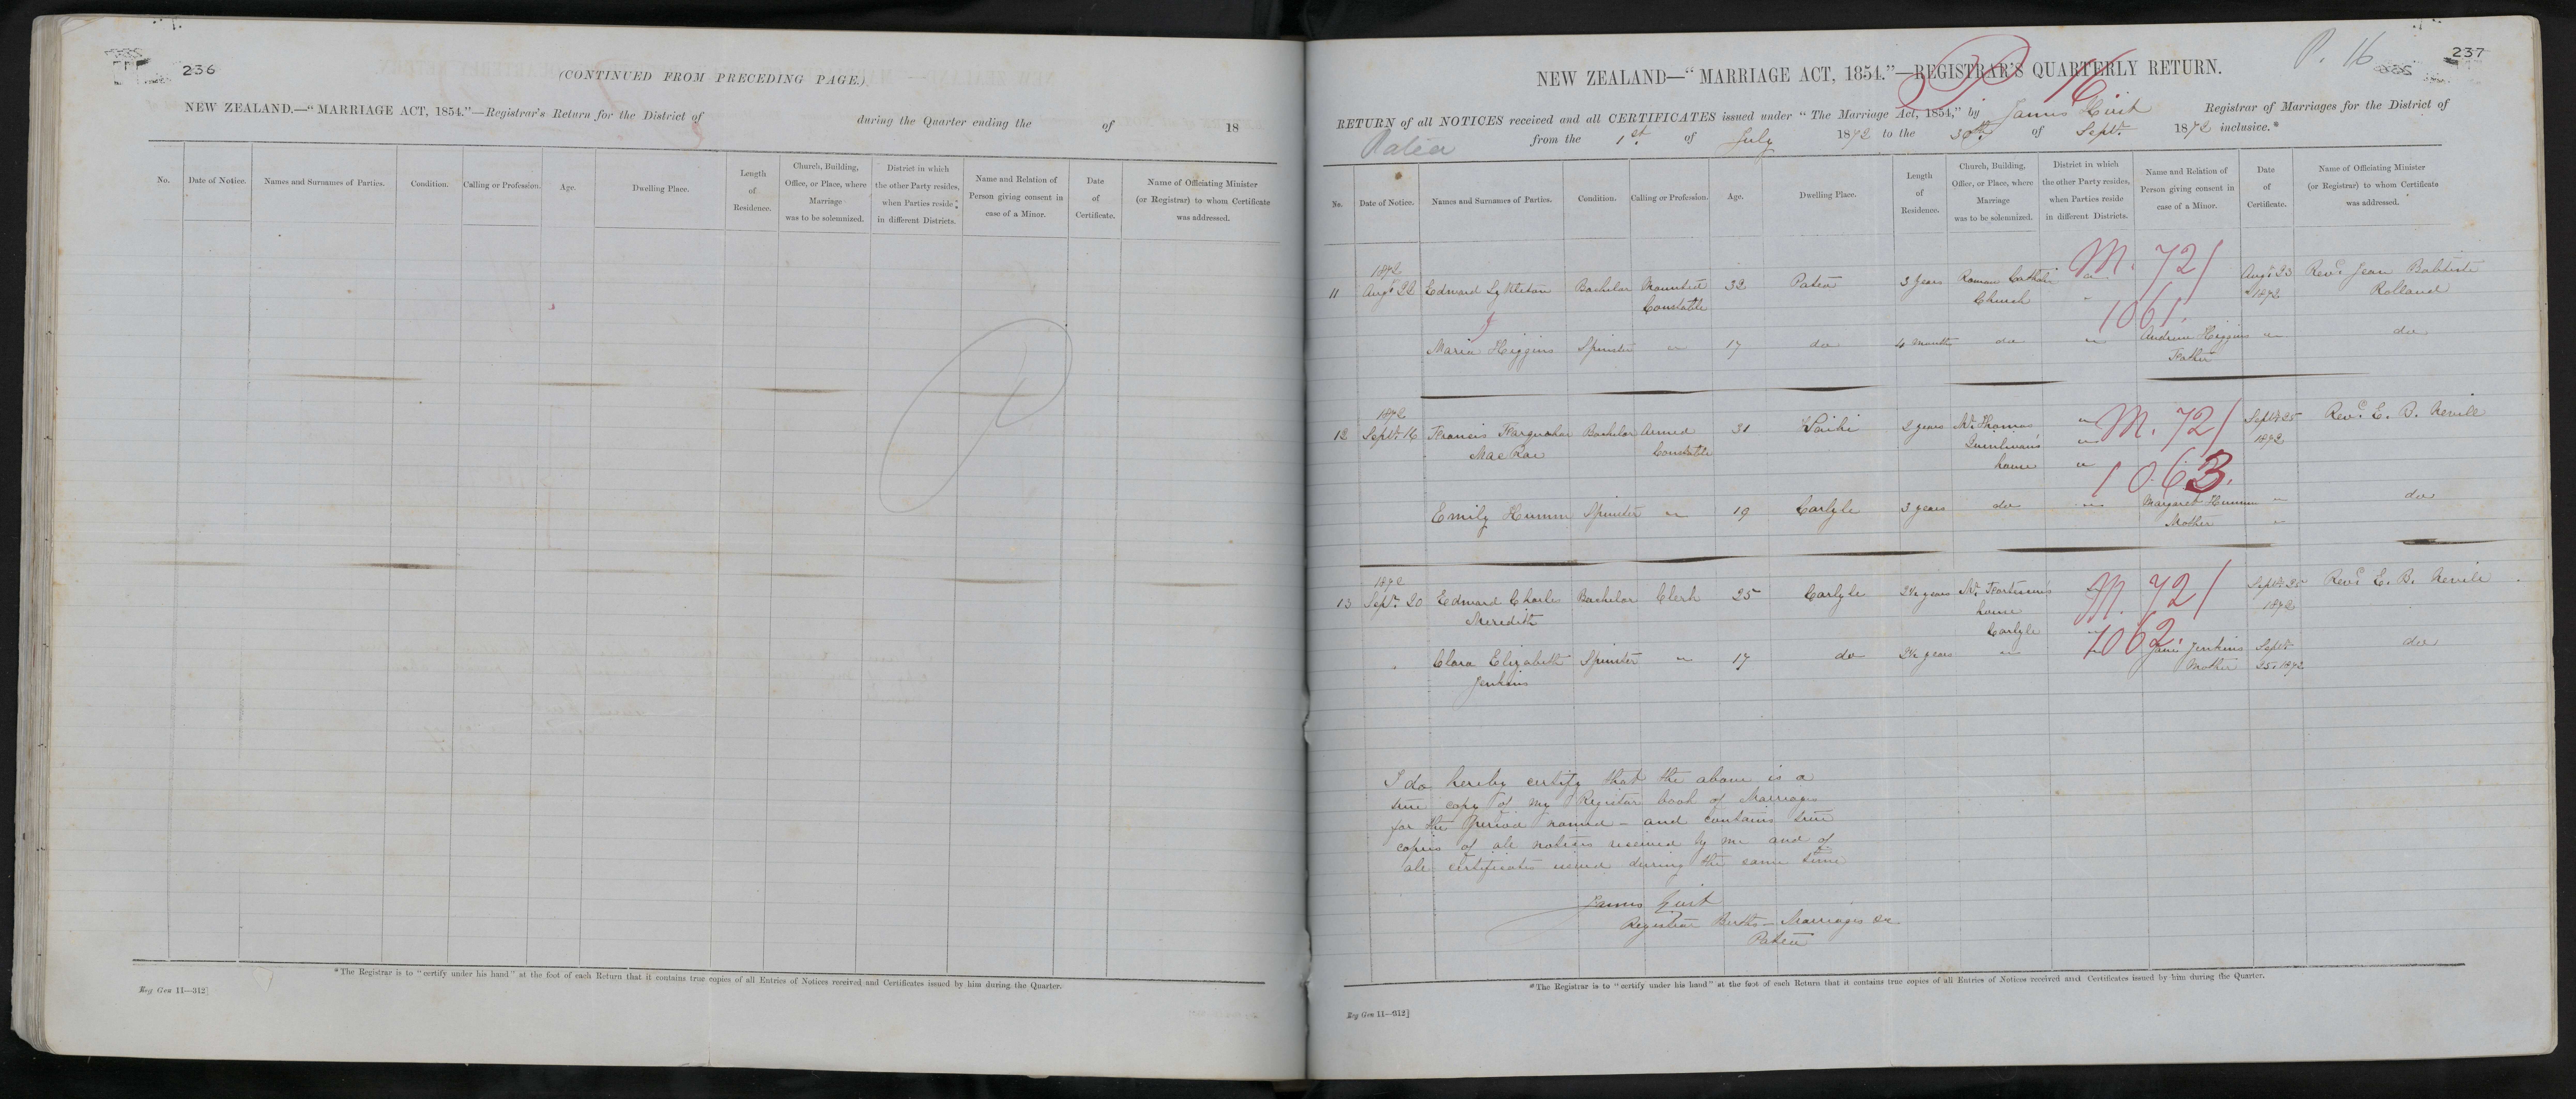 236
(CONTINUED FROM PRECEDING PAGE.)
NEW ZEALAND.—"MARRIAGE ACT, 1854."—Registrar's Return for the District of during the Quarter ending the of 18
No.
Date of Notice.
Names and Surnames of Parties.
Condition.
Calling or Profession.
Age.
Dwelling Place.
Length
of
Residence.
Church, Building,
Office, or Place, where
Marriage
was to be solemnized.
District in which
the other Party resides,
when Parties reside
in different Districts.
Name and Relation of
Person giving consent in
case of a Minor.
Date
of
Certificate.
Name of Officiating Minister
(or Registrar) to whom Certificate
was addressed.
*The Registrar is to "certify under his hand" at the foot of each Return that it contains true copies of all Entries of Notices received and Certificates issued by him during the Quarter.
Reg Gen 11—312]
P. 16
237
NEW ZEALAND—"MARRIAGE ACT, 1854."—REGISTRAR'S QUARTERLY RETURN.
16
RETURN of all NOTICES received and all CERTIFICATES issued under "The Marriage Act, 1854," by James Registrar of Marriages for the District of
Patea from the 1st of July 1872 to the 30th of Sept. 1872 inclusive.*
No.
Date of Notice.
Names and Surnames of Parties.
Condition.
Calling or Profession.
Age.
Dwelling Place.
Length
of
Residence.
Church, Building,
Office, or Place, where
Marriage
was to be solemnized.
District in which
the other Party resides,
when Parties reside
in different Districts.
Name and Relation of
Person giving consent in
case of a Minor.
Date
of
Certificate.
Name of Officiating Minister
(or Registrar) to whom Certificate
was addressed.
1872
11 Augt 22 Edward Lyttleton Bachelor Mounted 32 Patea 3 years Roman Catholic M. 721 Augt 23 Revd. Jean Babtiste
Constable Church 1061. 1872 Rolland
Maria Higgins Spinster " 17 do 4 months do " Andrew Higgins " do
Father
1872
12 Septr. 16 Francis Farquahar Bachelor Armed 31 Waihi 2 years Mr. Thomas " M. 721 Septr 25 Revd. E. B. Nevile
MacRae Constable Quinlivan's " 1872
house " 1063.
Emily Humm Spinster " 19 Carlyle 3 years do " Margaret Humm " do
Mother "
1872
13 Septr. 20 Edward Charles Bachelor Clerk 25 Carlyle 2½ years Mr. house M. 721 Septr 25 Revd. E. B. Nevile
Meredith Carlyle 1872
1062.
Clara Elizabeth Spinster " 17 do 2½ years " " Jenkins Septr do
Jenkins Mother 25. 1872
I do hereby certify that the above is a
true copy of my Register book of Marriages
for the Period named – and contains true
copies of all notices received by me and of
all certificates issued during the same time
James
Registrar Births – Marriages &c
Patea
*The Registrar is to "certify under his hand" at the foot of each Return that it contains true copies of all Entries of Notices received and Certificates issued by him during the Quarter.
Reg Gen 11—312]